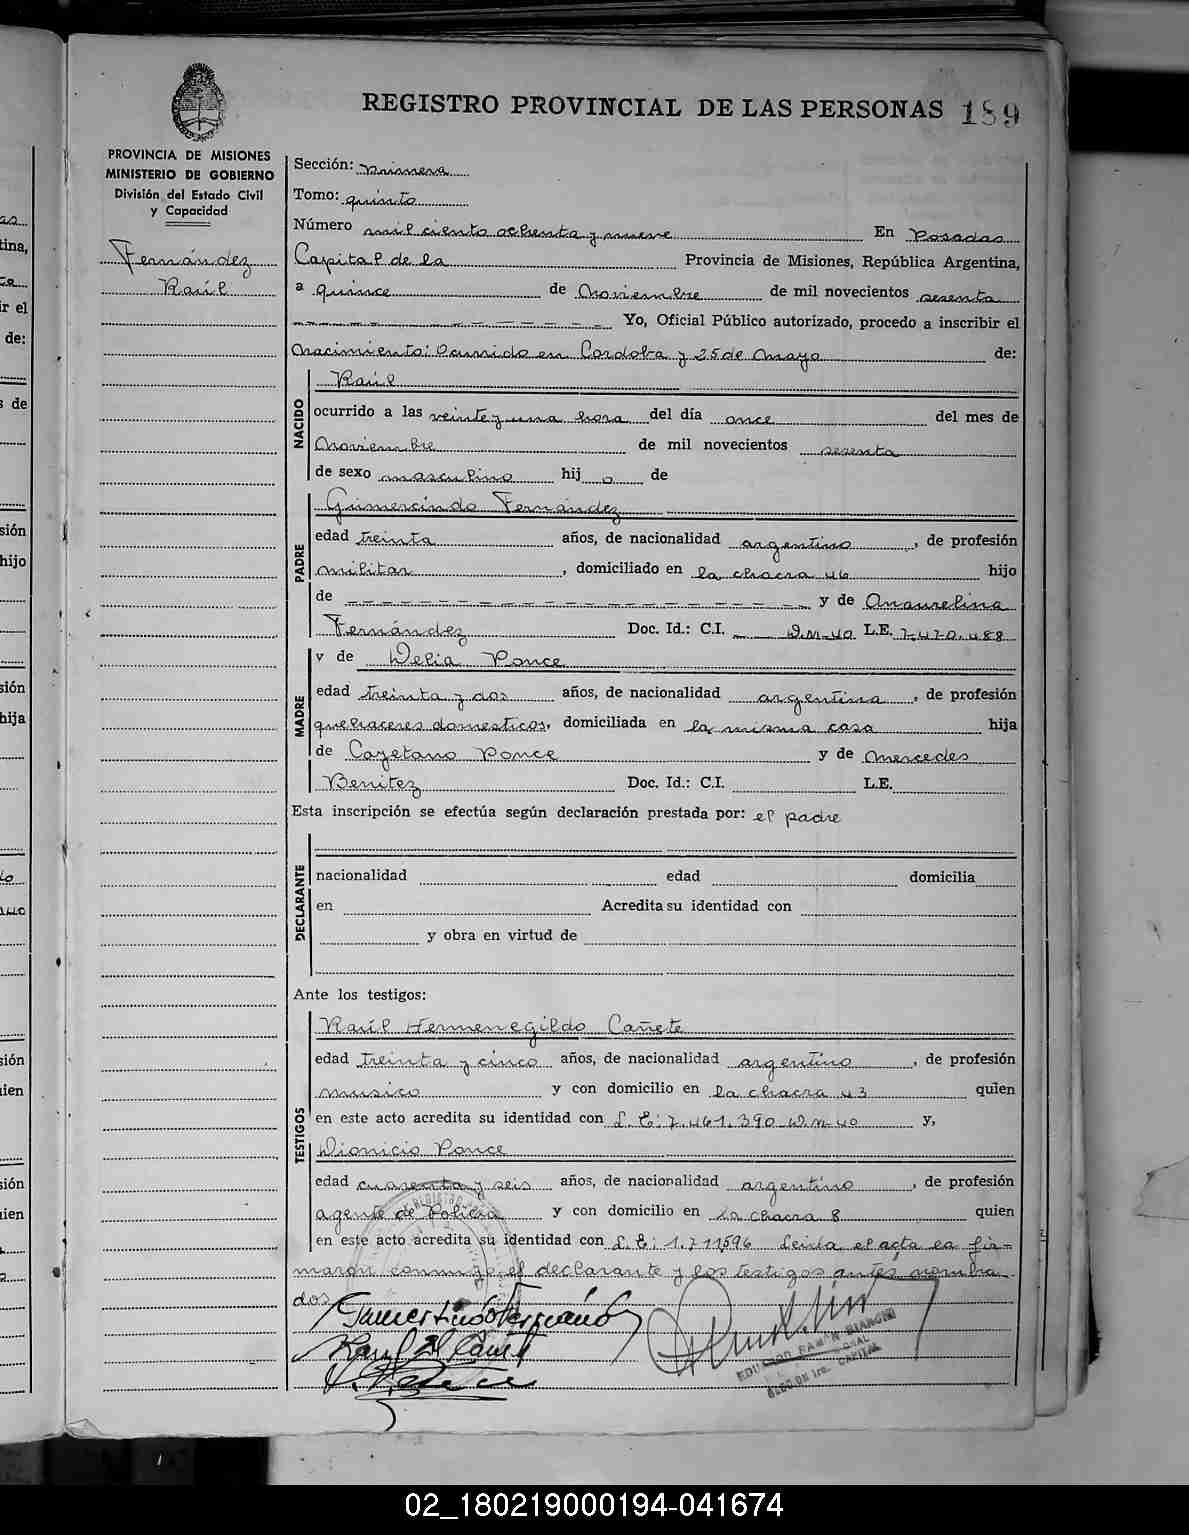 REGISTRO PROVINCIAL DE LAS PERSONAS 189
PROVINCIA DE MISIONES
MINISTERIO DE GOBIERNO
División del Estado Civil
y Capacidad
Fernández
Raúl
Sección: primera
Tomo: quinto
Número mil ciento ochenta y nueve En Posadas
Capital de la Provincia de Misiones, República Argentina,
a quince de Noviembre de mil novecientos sesenta
Yo, Oficial Público autorizado, procedo a inscribir el
Nacimiento: Ocurrido en Cordoba y 25 de Mayo de:
NACIDO
Raúl
ocurrido a las veinte y una hora del día once del mes de
Noviembre de mil novecientos sesenta
de sexo masculino hij o de
PADRE
Gumercindo Fernández
edad treinta años, de nacionalidad argentino, de profesión
militar, domiciliado en la chacra 46 hijo
de y de Anaurelina
Fernández Doc. Id.: C.I. D.M. 40 L.E. 7.470.488
MADRE
y de Delia Ponce
edad treinta y dos años, de nacionalidad argentina, de profesión
quehaceres domesticos, domiciliada en la misma casa hija
de Cayetano Ponce y de Mercedes
Benitez Doc. Id.: C.I. L.E.
Esta inscripción se efectúa según declaración prestada por: el padre
DECLARANTE
nacionalidad edad domicilia
en Acredita su identidad con
y obra en virtud de
Ante los testigos:
TESTIGOS
Raúl Hermenegildo Cañete
edad treinta y cinco años, de nacionalidad argentino, de profesión
musico y con domicilio en la chacra 43 quien
en este acto acredita su identidad con L.E: 7.461.390 D.M. 40 y,
Dionicio Ponce
edad cuarenta y seis años, de nacionalidad argentino, de profesión
agente de Policia y con domicilio en la chacra 8 quien
en este acto acredita su identidad con L.E: 1.711596 Leida el acta la fir-
maron conmigo, el declarante y los testigos antes nombra
dos
Gumercindo Fernández
Raul H Cañete
D. Ponce
EDUARDO RAMON BIANCHI
02_180219000194-041674